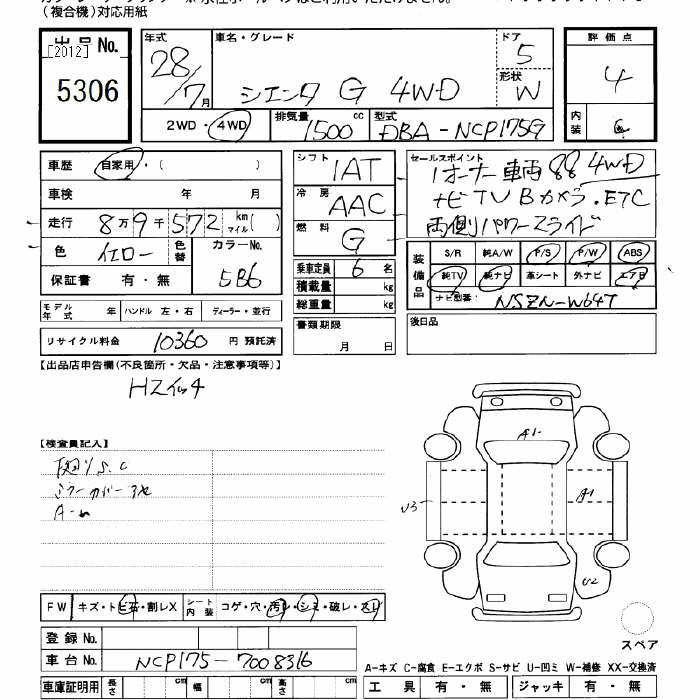 (複合機)対応用紙
出品No.
[2012]
5306
年式
28/7月
車名・グレード
シエンタ G 4WD
ドア
5
形状
W
評価点
4
内装
2WD・4WD
排気量
1500cc
型式
DBA-NCP175G
車歴 自家用・( )
車検 年 月
走行 8万9千572 km マイル( )
色 イエロー 色替 カラーNo. 5B6
保証書 有・無
シフト 1AT
冷房 AAC
燃料 G
乗車定員 6名
積載量 kg
総重量 kg
書類期限 月 日
セールスポイント
1オーナー車両 88 4WD
ナビTV Bカメラ.ETC
両側パワースライド
装備品
S/R 純A/W P/S P/W ABS
純TV 純ナビ 革シート 外ナビ エアB
ナビ型番: NSZN-W64T
後日品
モデル年式 年 ハンドル 左・右 ディーラー・並行
リサイクル料金 10360 円 預託済
【出品店申告欄(不良箇所・欠品・注意事項等)】
Hスイッチ
【検査員記入】
ミラーカバー
A1
U3
A1
U2
FW キズ・トビ石・割レX シート内装 コゲ・穴・汚レ・シミ・破レ・スレ
登録No.
車台No. NCP175-7008316
車庫証明用 長さ cm 幅 cm 高さ cm
スペア
A-キズ C-腐食 E-エクボ S-サビ U-凹ミ W-補修 XX-交換済
工具 有・無 ジャッキ 有・無